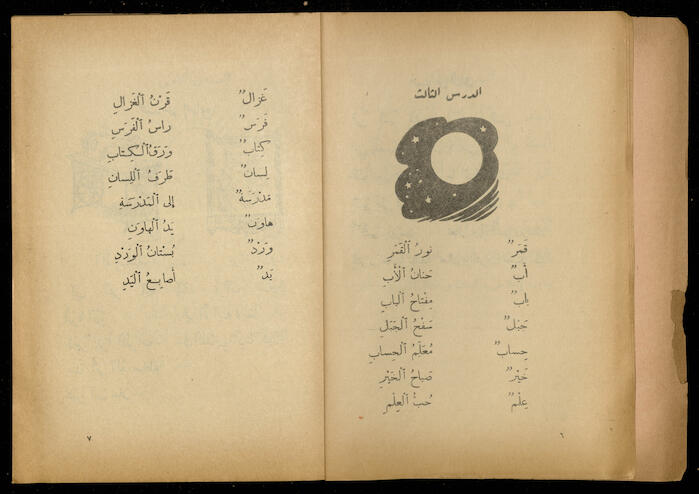 الدرس الثالث
قَمَرٌ نورُ ٱلْقَمَرِ
أَبٌ حَنانُ ٱلْأَبِ
بابٌ مِفْتاحُ ٱلْبابِ
جَبَلٌ سَفْحُ ٱلْجَبَلِ
حِسابٌ مُعَلِّمُ ٱلْحِسابِ
خَيْرٌ صَباحُ ٱلْخَيْرِ
عِلْمٌ حُبُّ ٱلْعِلْمِ
٦
غَزالٌ قَرْنُ ٱلْغَزالِ
فَرَسٌ راسُ ٱلْفَرَسِ
كِتابٌ وَرَقُ ٱلْكِتابِ
لِسانٌ طَرَفُ ٱللِّسانِ
مَدْرَسَةٌ إلى ٱلْمَدْرَسَةِ
هاوَنٌ يَدُ ٱلْهاوَنِ
وَرْدٌ بُسْتانُ ٱلْوَرْدِ
يَدٌ أصابِعُ ٱلْيَدِ
٧